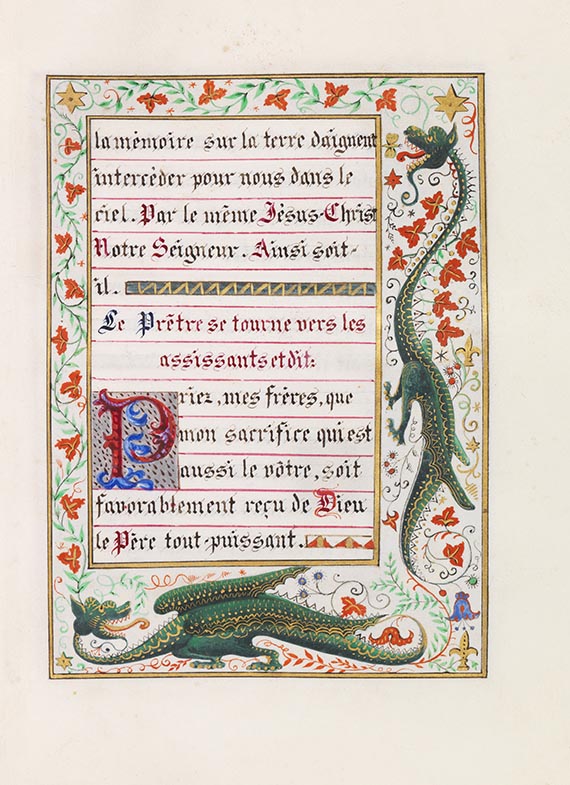 la mémoire sur la terre daignent
intercéder pour nous dans le
ciel. Par le même Jésus-Christ
Notre Seigneur. Ainsi soit-
il.
Le Prêtre se tourne vers les
assissants et dit:
Priez, mes frères, que
mon sacrifice qui est
aussi le vôtre, soit
favorablement reçu de Dieu
le Père tout-puissant.